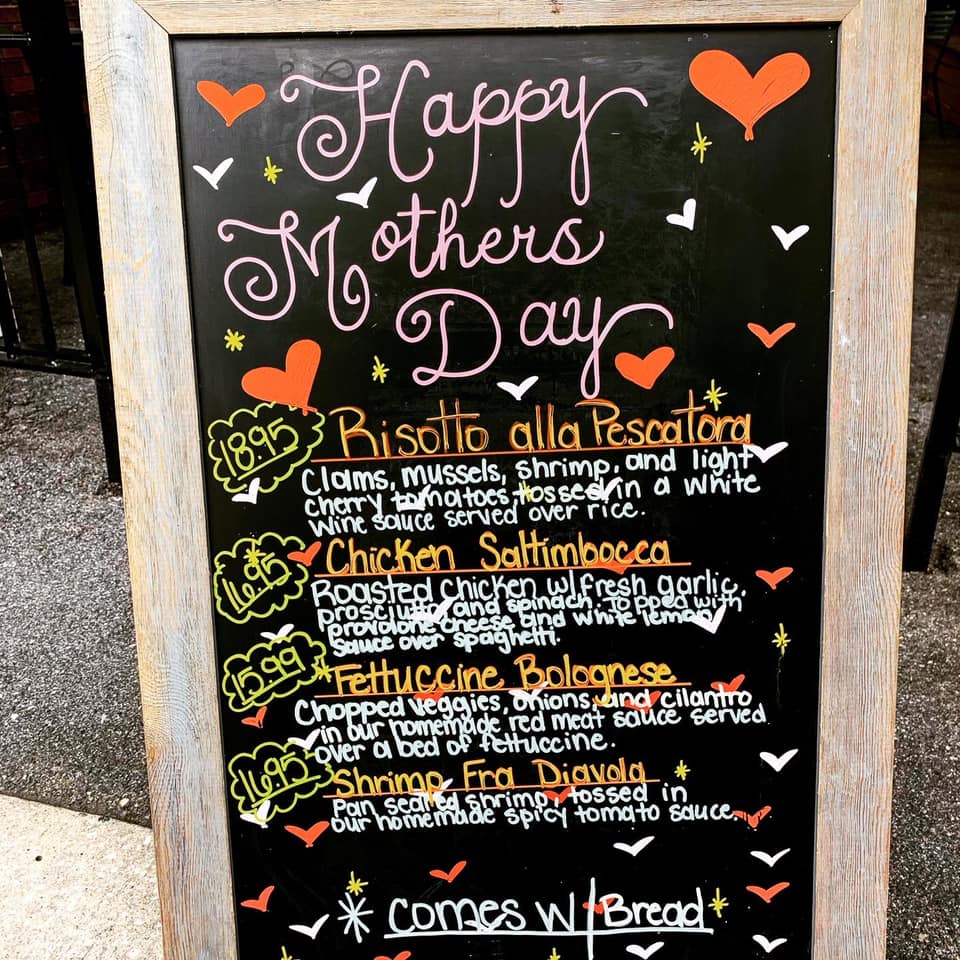 Happy
Mothers
Day
18.95 Risotto alla Pescatora
Clams, mussels, shrimp, and light
cherry tomatoes tossed in a white
wine sauce served over rice.
16.95 Chicken Saltimbocca
Roasted chicken w/ fresh garlic,
prosciutto and spinach. Topped with
provolone cheese and white lemon
sauce over spaghetti.
15.99 Fettuccine Bolognese
Chopped veggies, onions, and cilantro
in our homemade red meat sauce served
over a bed of fettuccine.
16.95 Shrimp Fra Diavola
Pan seared shrimp, tossed in
our homemade spicy tomato sauce.
* Comes w/ Bread